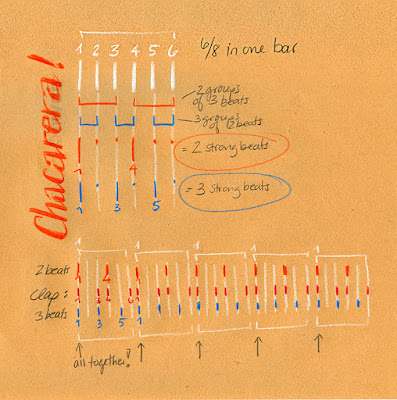 Chacarera!
1 2 3 4 5 6
6/8 in one bar
2 groups
of 3 beats
3 groups
of 2 beats
1 4
= 2 strong beats
1 3 5
= 3 strong beats
1 1 1 1 1
2 beats 1 4
Clap: 1 3 4 6 1
3 beats 1 3 5 1
all together!